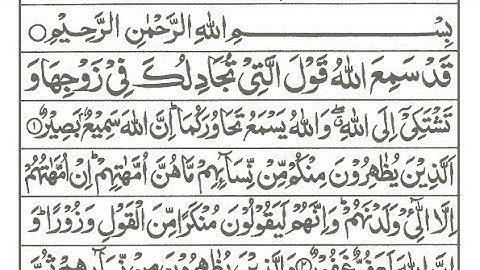 بِسْمِ اللهِ الرَّحْمٰنِ الرَّحِيْمِ ○
قَدْ سَمِعَ اللهُ قَوْلَ الَّتِيْ تُجَادِلُكَ فِيْ زَوْجِهَا وَ
تَشْتَكِيْٓ اِلَى اللهِ ۖ وَاللهُ يَسْمَعُ تَحَاوُرَكُمَا ؕ اِنَّ اللهَ سَمِيْعٌۢ بَصِيْرٌ ۝۱
اَلَّذِيْنَ يُظٰهِرُوْنَ مِنْكُمْ مِّنْ نِّسَآىِٕهِمْ مَّا هُنَّ اُمَّهٰتِهِمْ ؕ اِنْ اُمَّهٰتُهُمْ
اِلَّا الّٰٓـِٔيْ وَلَدْنَهُمْ ؕ وَاِنَّهُمْ لَيَقُوْلُوْنَ مُنْكَرًا مِّنَ الْقَوْلِ وَزُوْرًا ؕ وَ
اِنَّ اللهَ لَعَفُوٌّ غَفُوْرٌ ۝۲ وَالَّذِيْنَ يُظٰهِرُوْنَ مِنْ نِّسَآىِٕهِمْ ثُمَّ